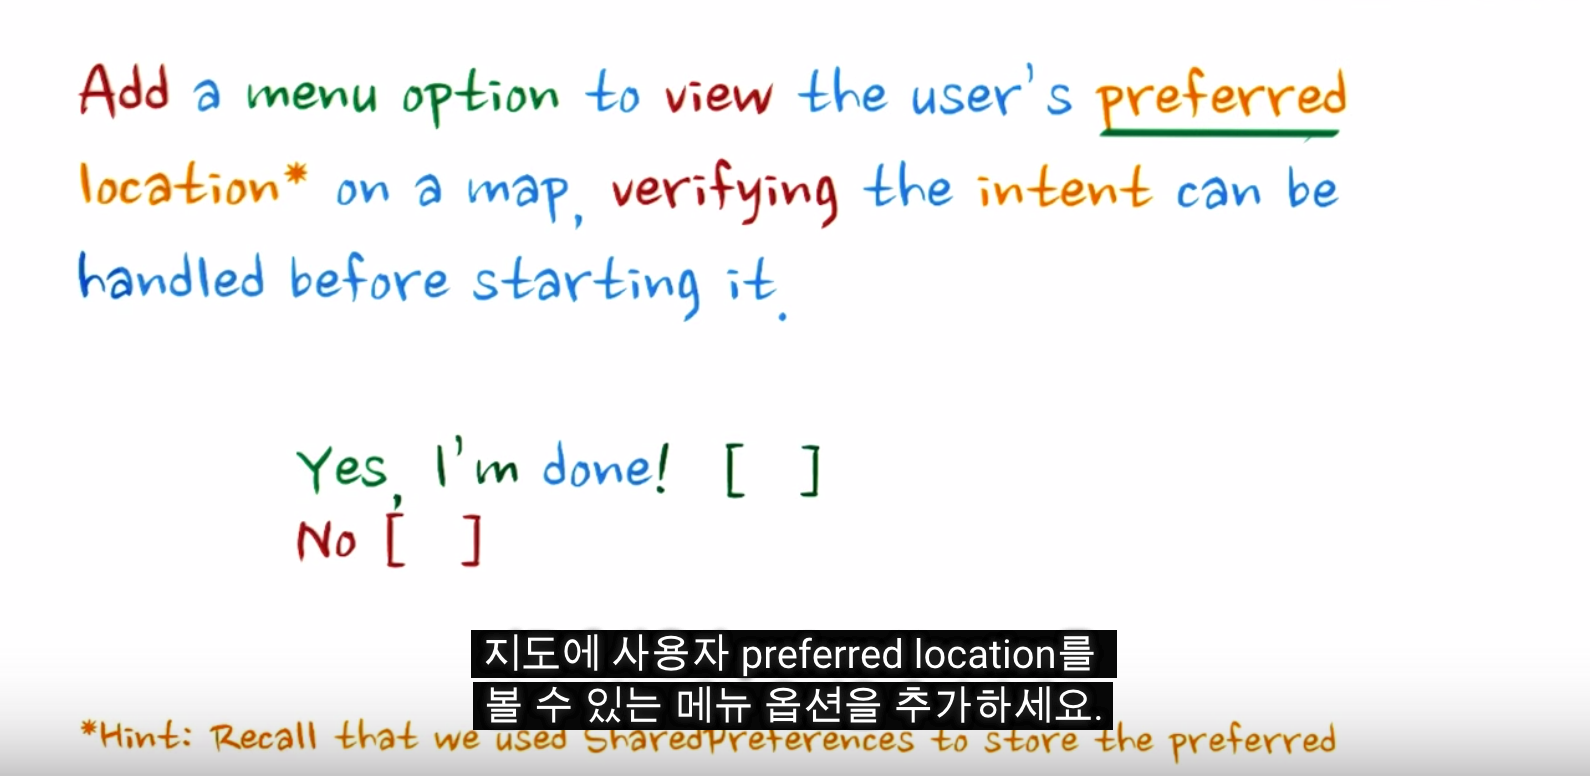 Add a menu option to view the user's preferred
location* on a map, verifying the intent can be
handled before starting it.
Yes, I'm done! [ ]
No [ ]
지도에 사용자 preferred location를
볼 수 있는 메뉴 옵션을 추가하세요.
*Hint: Recall that we used SharedPreferences to store the preferred